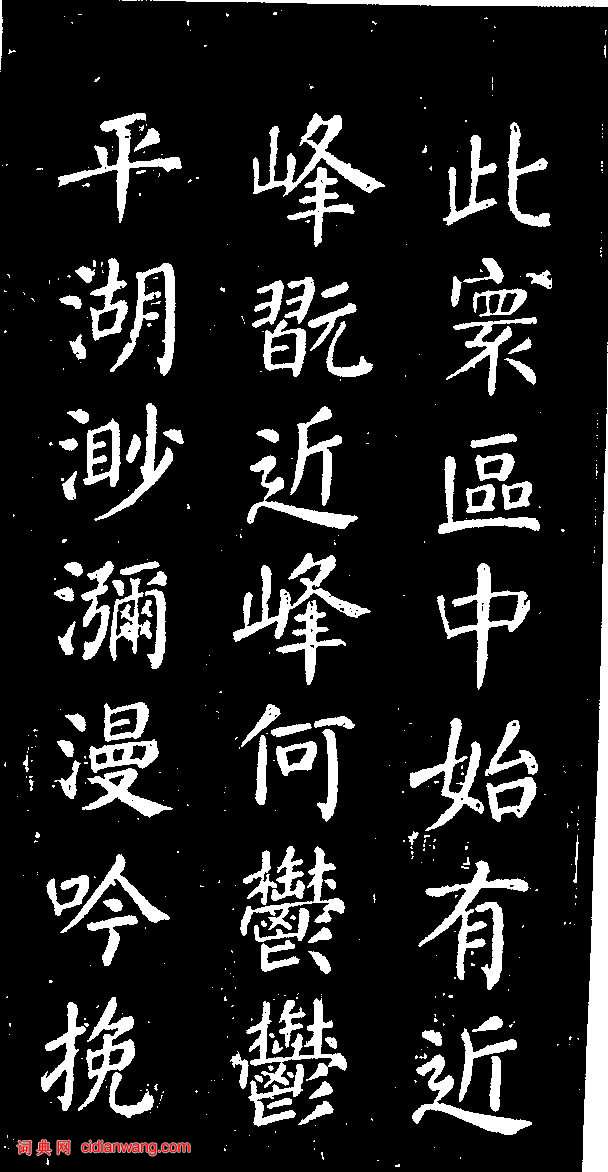 此寰區中始有近
峰翫近峰何鬱鬱
平湖渺瀰漫吟挽
词典网 cidianwang.com